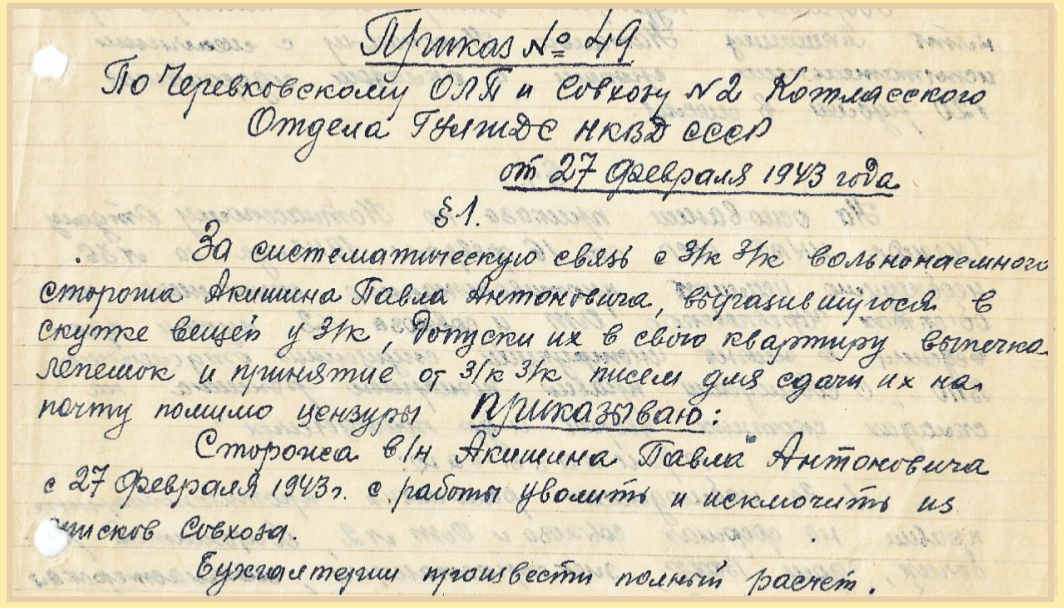 Приказ № 49
По Черевковскому ОЛП и Совхозу №2 Котласского
Отдела ГУЛЖДС НКВД СССР
от 27 февраля 1943 года
§ 1.
За систематическую связь с з/к з/к вольнонаемного
сторожа Акишина Павла Антоновича, выразившугося в
скупке вещей у з/к, допуски их в свою квартиру выпечка
лепешок и принятие от з/к з/к писем для сдачи их на
почту помимо цензуры приказываю:
Сторожа в/н Акишина Павла Антоновича
с 27 февраля 1943г. с работы уволить и исключить из
списков Совхоза.
Бухгалтерии произвести полный расчет.